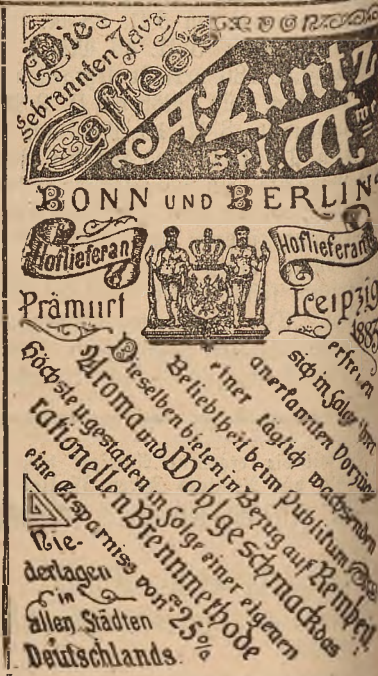 Die
gebrannten Java
Caffee's
VON
A. Zuntz
sel. Wwe
BONN UND BERLIN
Hoflieferant
Hoflieferant
Prämiirt
Leipzig
1883
erfreuen
sich in Folge ihrer
anerkannten
einer täglich wachsenden
Beliebtheit beim Publikum
Dieselben bieten in Bezug auf Reinheit,
Aroma und Wohlgeschmack das
Höchste u gestatten in Folge einer eigenen
rationellen Brennmethode
eine Ersparniss von ca 25%
Nie-
derlagen
in
allen Städten
Deutschlands.